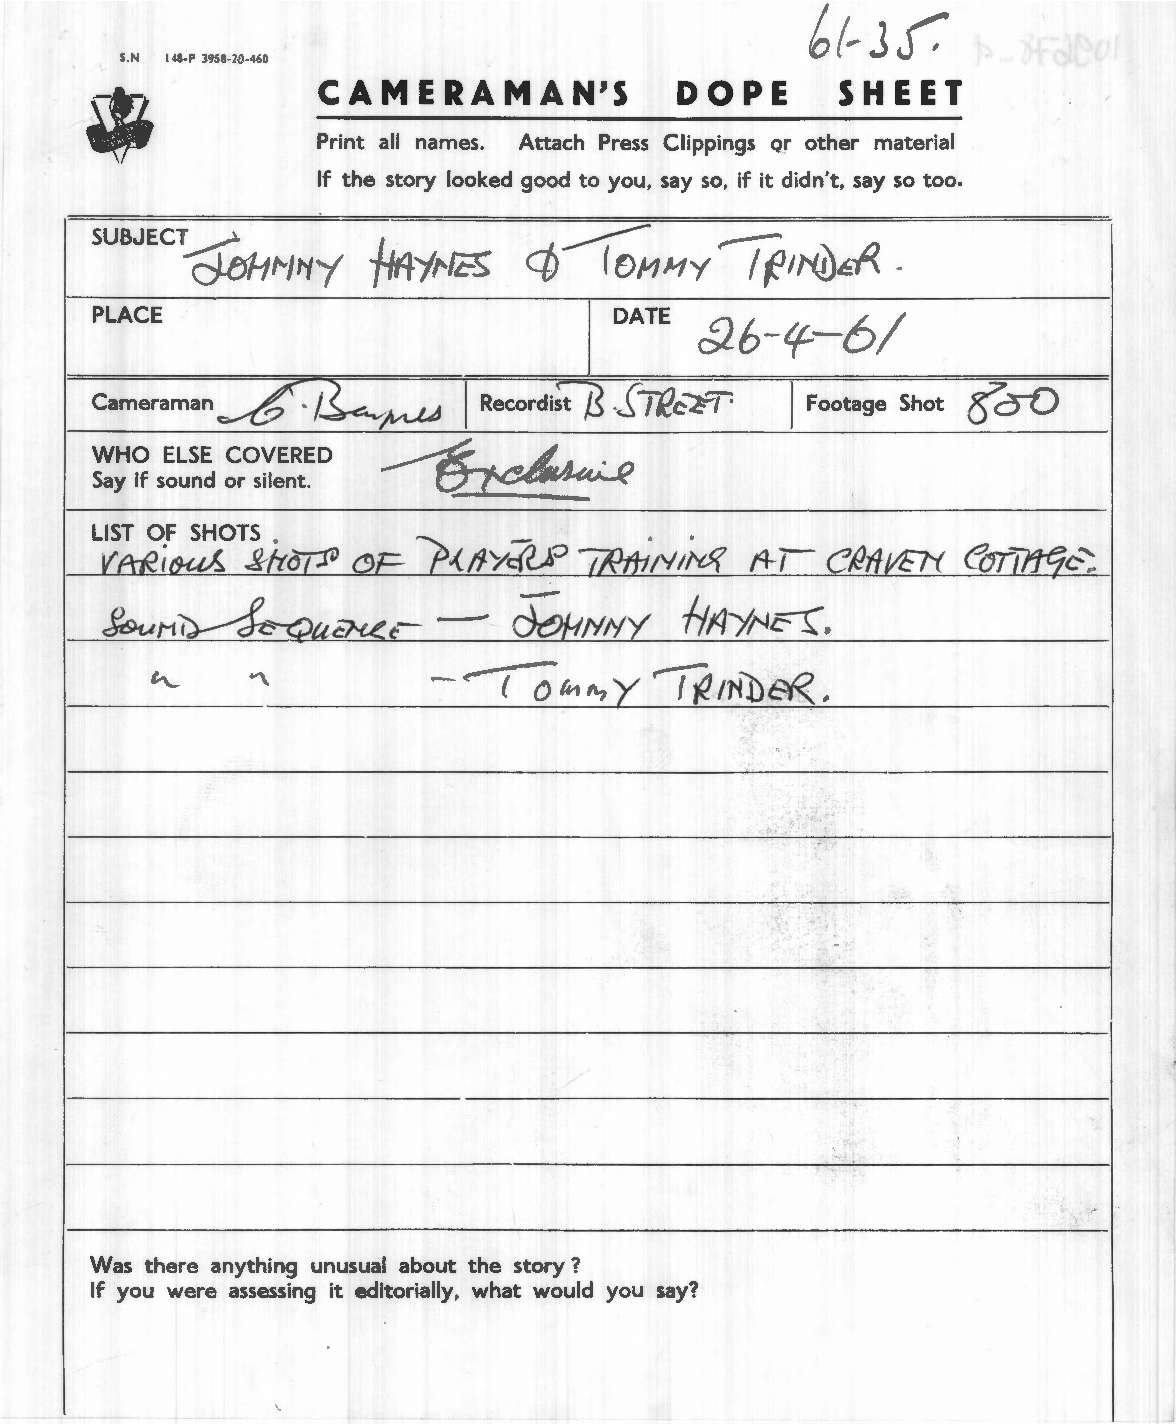 61-35.
S.N 148-P 3958-20-460
CAMERAMAN'S DOPE SHEET
Print all names. Attach Press Clippings or other material
If the story looked good to you, say so, if it didn't, say so too.
SUBJECT
JOHNNY HAYNES & TOMMY TRINDER.
PLACE DATE 26-4-61
Cameraman Baynes Recordist B. STREET. Footage Shot 800
WHO ELSE COVERED
Say if sound or silent.
Exclusive
LIST OF SHOTS
VARIOUS SHOTS OF PLAYERS TRAINING AT CRAVEN COTTAGE.
SOUND SEQUENCE — JOHNNY HAYNES.
" " — TOMMY TRINDER.
Was there anything unusual about the story?
If you were assessing it editorially, what would you say?